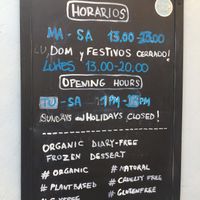 HORARIOS
MA - SA 13.00-
LU, DOM y FESTIVOS CERRADO!
LUNES 13.00-20.00
OPENING HOURS
TU - SA 1PM-
SUNDAYS and HOLIDAYS CLOSED!
ORGANIC DIARY-FREE
FROZEN DESSERT
# ORGANIC
# NATURAL
# PLANT BASED
# CRUELTY FREE
# GLUTENFREE